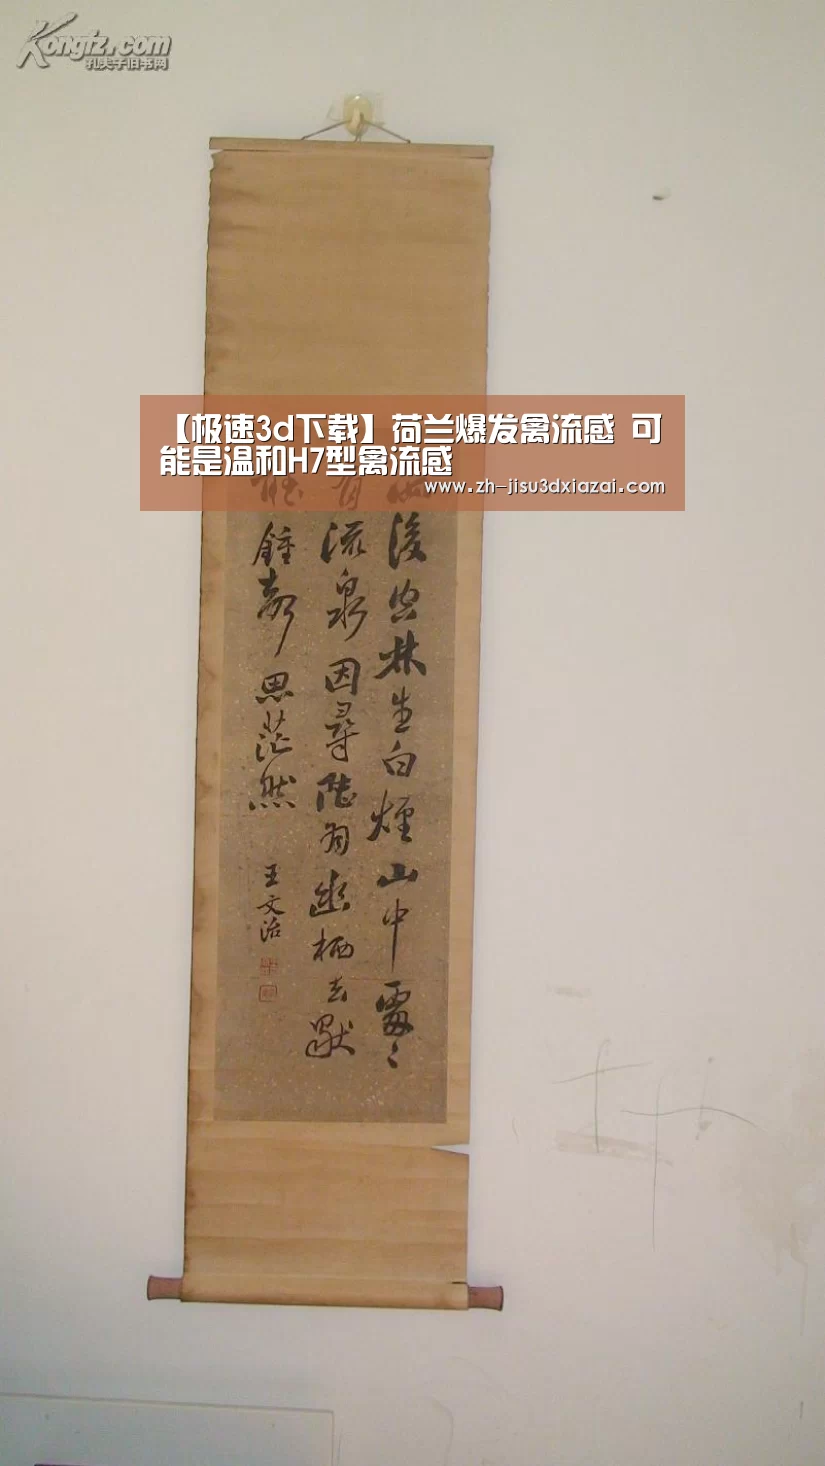 Kongfz.com
孔夫子旧书网
【极速3d下载】荷兰爆发禽流感 可
能是温和H7型禽流感
www.zh-jisu3dxiazai.com
后空林生白烟山中处处
有流泉因寻陆羽幽栖去独
听钟声思茫然
王文治